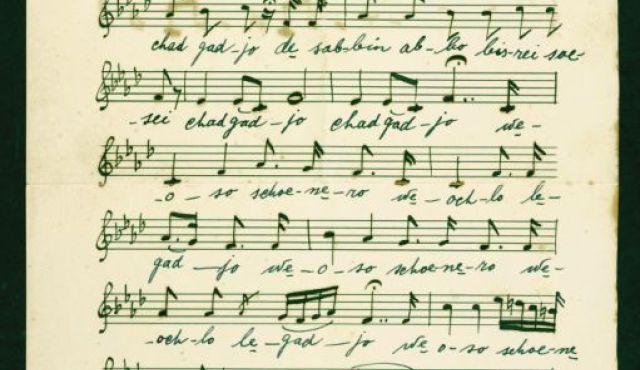 chad gad-jo de sab-bin ab-bo bis-rei soe-
-sei chadgad-jo chadgad-jo we-
-o-so schoe-ne-ro we-och-lo le-
gad-jo we-o-so schoe-ne-ro we-
-och-lo le-gad-jo we o-so schoe-ne